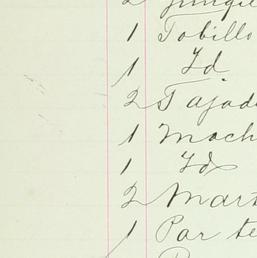 2
1 Tobillo
1 Id
2 Tajad
1 Moch
1 Id
2 Mart
1 Par te